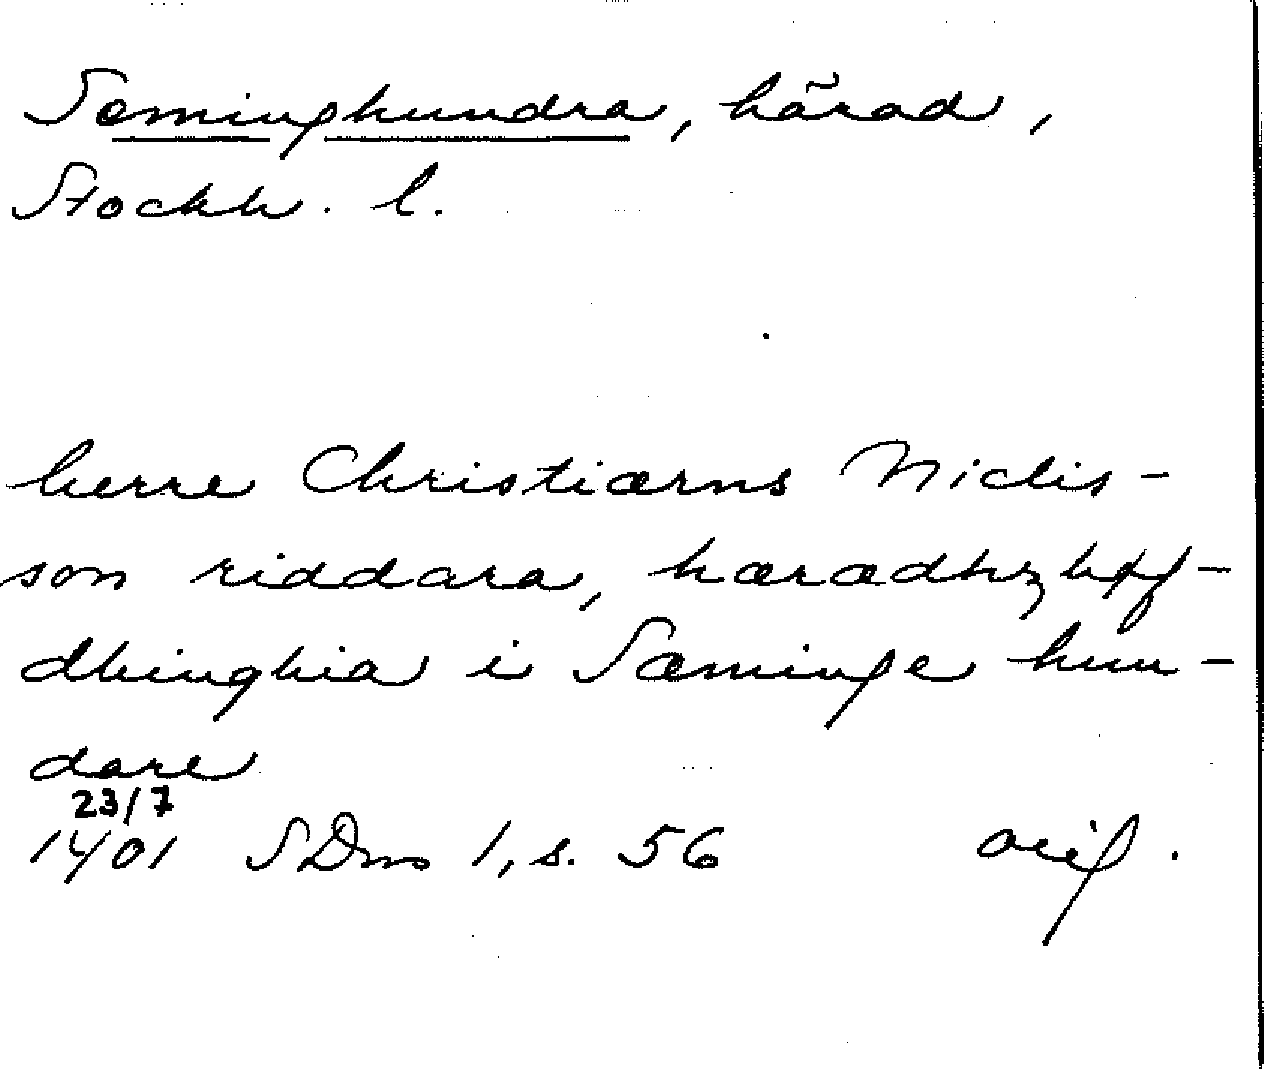 Seminghundra, härad,
Stockh. l.
herre Christiærns Niclis-
son riddara, hæradhzhøf-
dhinghia i Sæminge hun-
dare
23/7
1401 SDns 1, s. 56 orig.